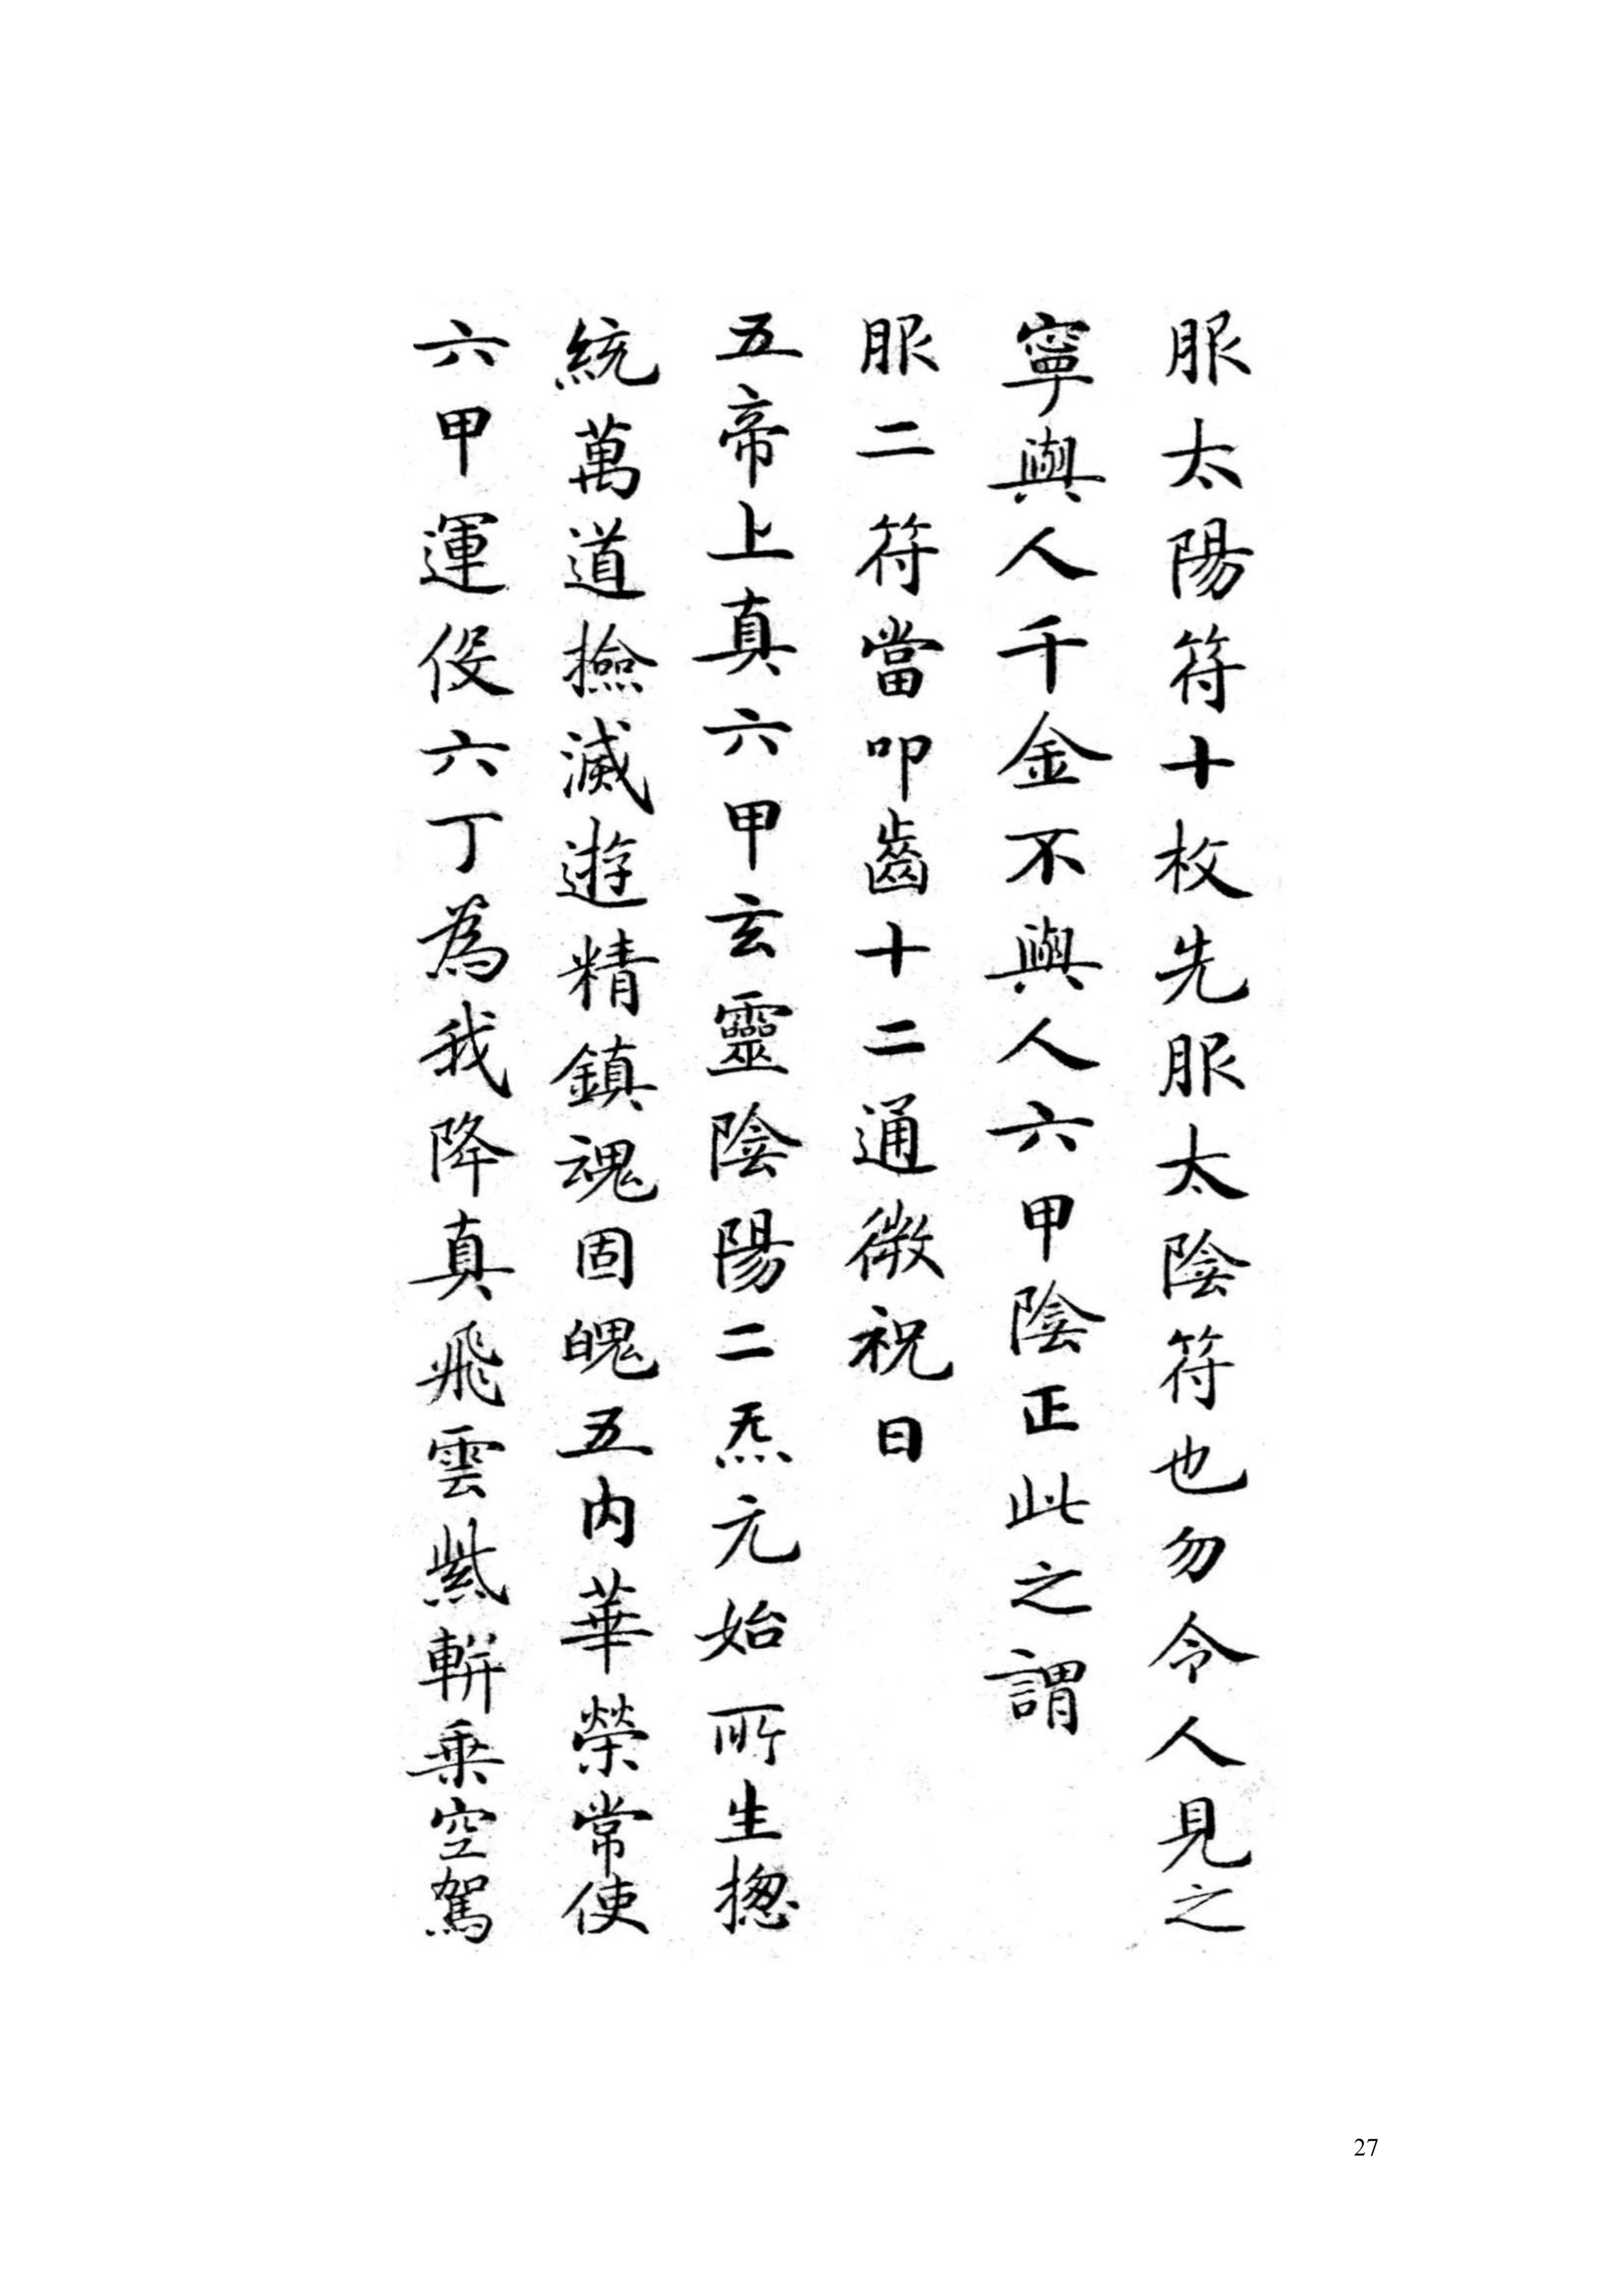 服太陽符十枚先服太陰符也勿令人見之
寧與人千金不與人六甲陰正此之謂
服二符當叩齒十二通微祝曰
五帝上真六甲玄靈陰陽二炁元始所生揔
統萬道撿滅遊精鎮魂固魄五內華榮常使
六甲運役六丁為我降真飛雲紫軿乗空駕
27